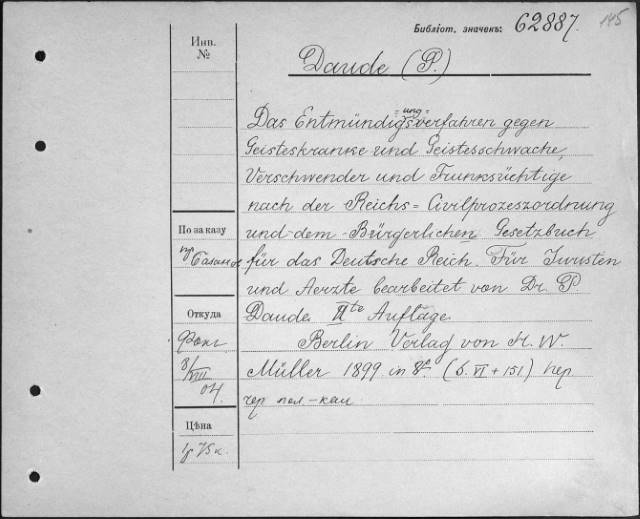 Библіот. значекъ: 62887. 145
Инв.
№
Daude (P.)
Das Entmündigungsverfahren gegen
Geisteskranke und Geistesschwache,
Verschwender und Trunksüchtige
nach der Reichs=Civilprozeszordnung
По заказу
und dem Bürgerlichen Gesetzbuch
für das Deutsche Reich. Für Juristen
und Aerzte bearbeitet von Dr. P.
Откуда
Daude. IIte Auflage.
Berlin Verlag von H. W.
8/VIII 04.
Müller 1899. in 8º. (S. VI + 151) пер
чер пол-кал
Цѣна
1р 75к.